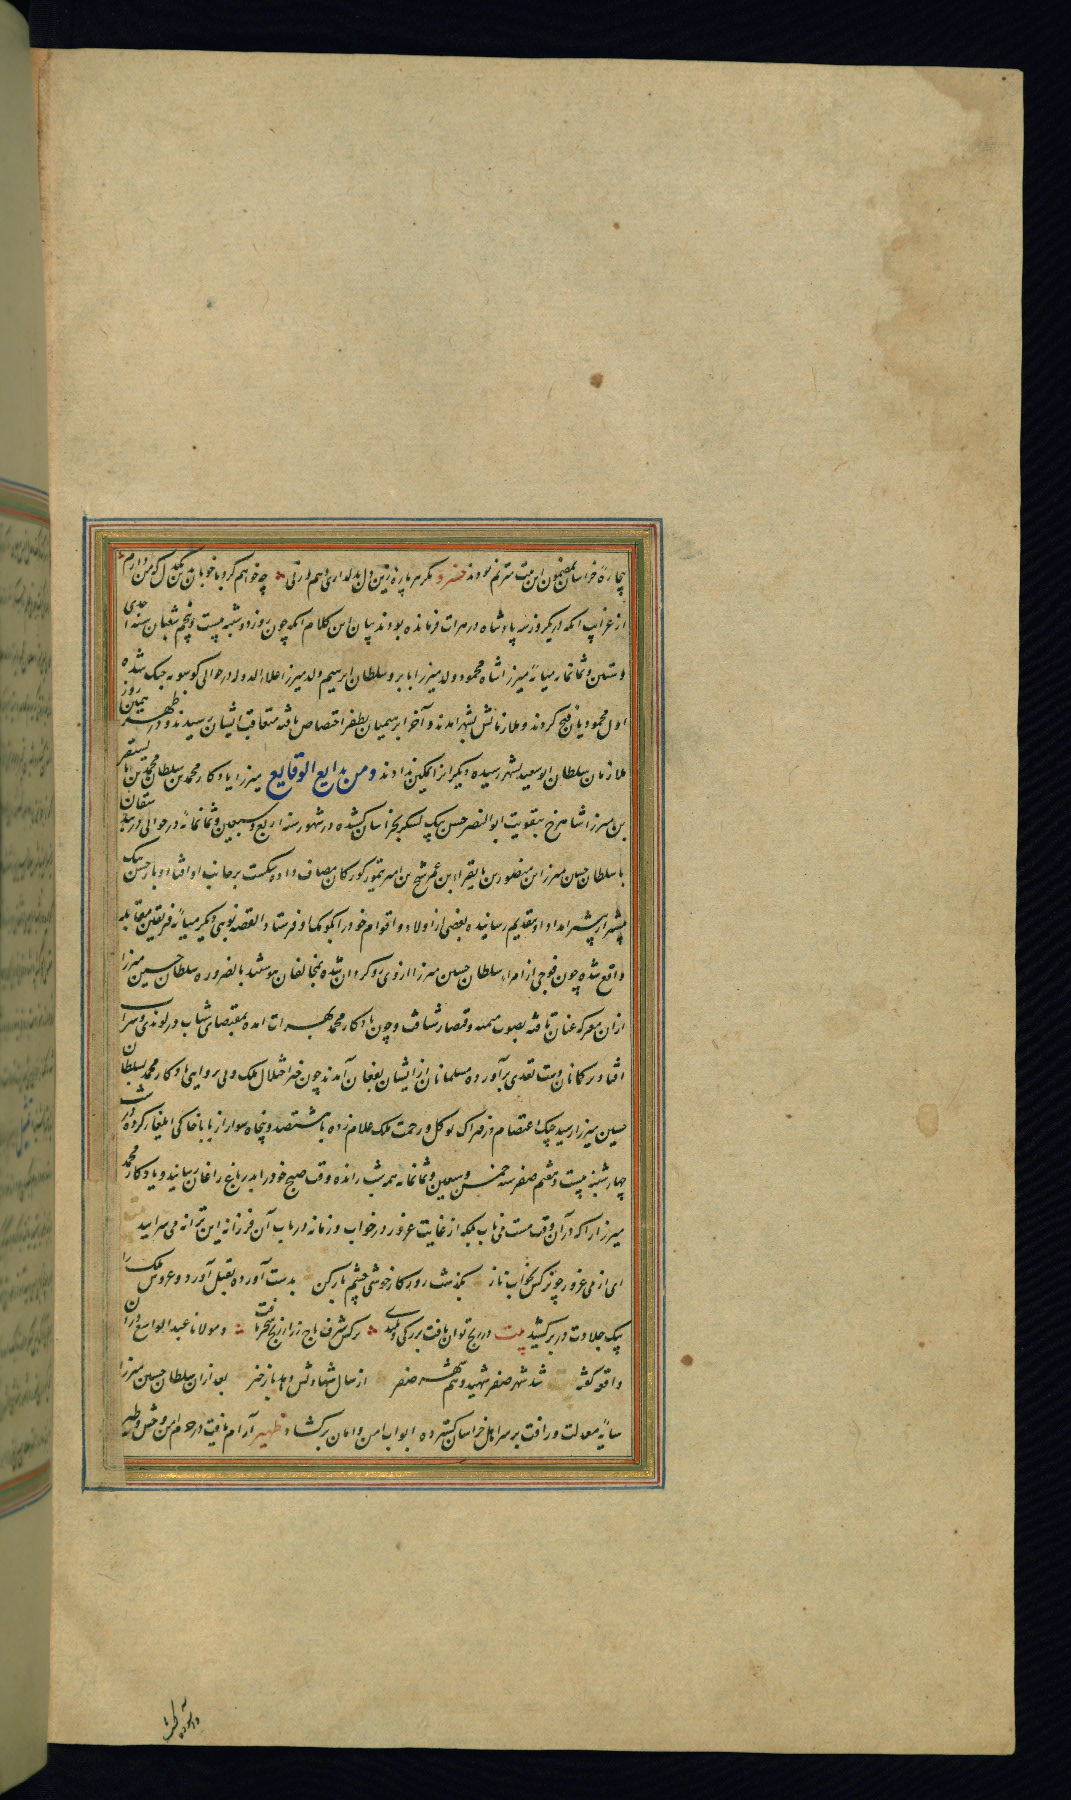 بیچاره خراسان بمضمون این بیت مترنم بودند خسرو مگر هر پاره زین دل بدلداری دهم ورنی چه خواهم کرد با خوبان بدین یکدل که من دارم
از غرایب آنکه در یکروز سه پادشاه در هرات فرمانده بودند بیان این کلام آنکه چون روز دوشنبه بیست و پنجم شعبان سنه احدی
وستین وثمانمایه میانهٔ میرزا شاه محمود ولد میرزا بابر و سلطان ابراهیم ولد میرزا علاءالدوله در حوالی کوسویه جنک شده
اول محمودیان فتح کردند و ملازمانش بشهر آمدند و آخر ابراهیمیان بظفر اختصاص یافته متعاقب ایشان رسیدند و در همین روز ظهر
ملازمان سلطان ابوسعید بشهر رسیده دیگر انرا تمکین ندادند ومن بدایع الوقایع میرزا یادکار محمد بن سلطان محمد بن بایسنقر
بن میرزا شاهرخ بتقویت ابوالنصر حسن بیک لشکر بخراسان کشیده در شهور سنه اربع وسبعین وثمانمائه در حوالی
با سلطان حسین میرزا بن منصور بن بایقرا بن عمر شیخ بن امیر تیمور کورکان مصاف داده شکست بر جانب او افتاد و باز حسن بیک
بیشتر از پیشتر امداد او بتقدیم رسانیده بعضی از اولاد و اقوام خود را بکومک او فرستاد القصه نوبتی دیگر میانهٔ فریقین مقابله
واقع شده چون فوجی از امراء سلطان حسین میرزا از وی روکردان شده بمخالفان پیوستند بالضروره سلطان حسین میرزا
ازان معرکه عنان تافته بصوب میمنه و قیصار شتافت و چون یادکار محمد بهرات آمده بمقتضای شباب در لوندی و شراب
افتاد ترکمانان دست تعدی برآورده مسلمانان از ایشان بفغان آمدند چون خبر اختلال ملک و بی پروایی یادکار محمد بسلطان
حسین میرزا رسید چنک اعتصام در فتراک توکل و رحمت ملک علام زده با هشتصد و پنجاه سوار از بابا خاکی ایلغار کرده در شب
چهارشنبه بیست و هفتم صفر سنه خمس وسبعین وثمانمایه همه شب رانده وقت صبح خود را بدر باغ زاغان رسانید و یادکار محمد
میرزا را که در آن وقت مست می ناب بلکه از غایت غرور در خواب و زمانه در باب آن فرزانه این ترانه می سرایید
ای از می غرور چو نرکس بخواب ناز بگذشت روزکار خوشی چشم باز کن بدست آورده بقتل آورد و عروس ملک را
بیک جلادت در بر کشید بیت در رنج توان یافت بزرکی و بلندی نرکس شرف تاج زر از رنج سحر یافت و مولانا عبدالواسع در آن
واقعه گفته شد شهر صفر شهید و هم شهر صفر از سال شهادتش دهد باز خبر بعد ازان سلطان حسین میرزا
سایهٔ معدلت و رافت بر سر اهل خراسان کسترده ابواب امن و امان برکشاد ظهیر آرام یافت در حرم امن وحش و طیر